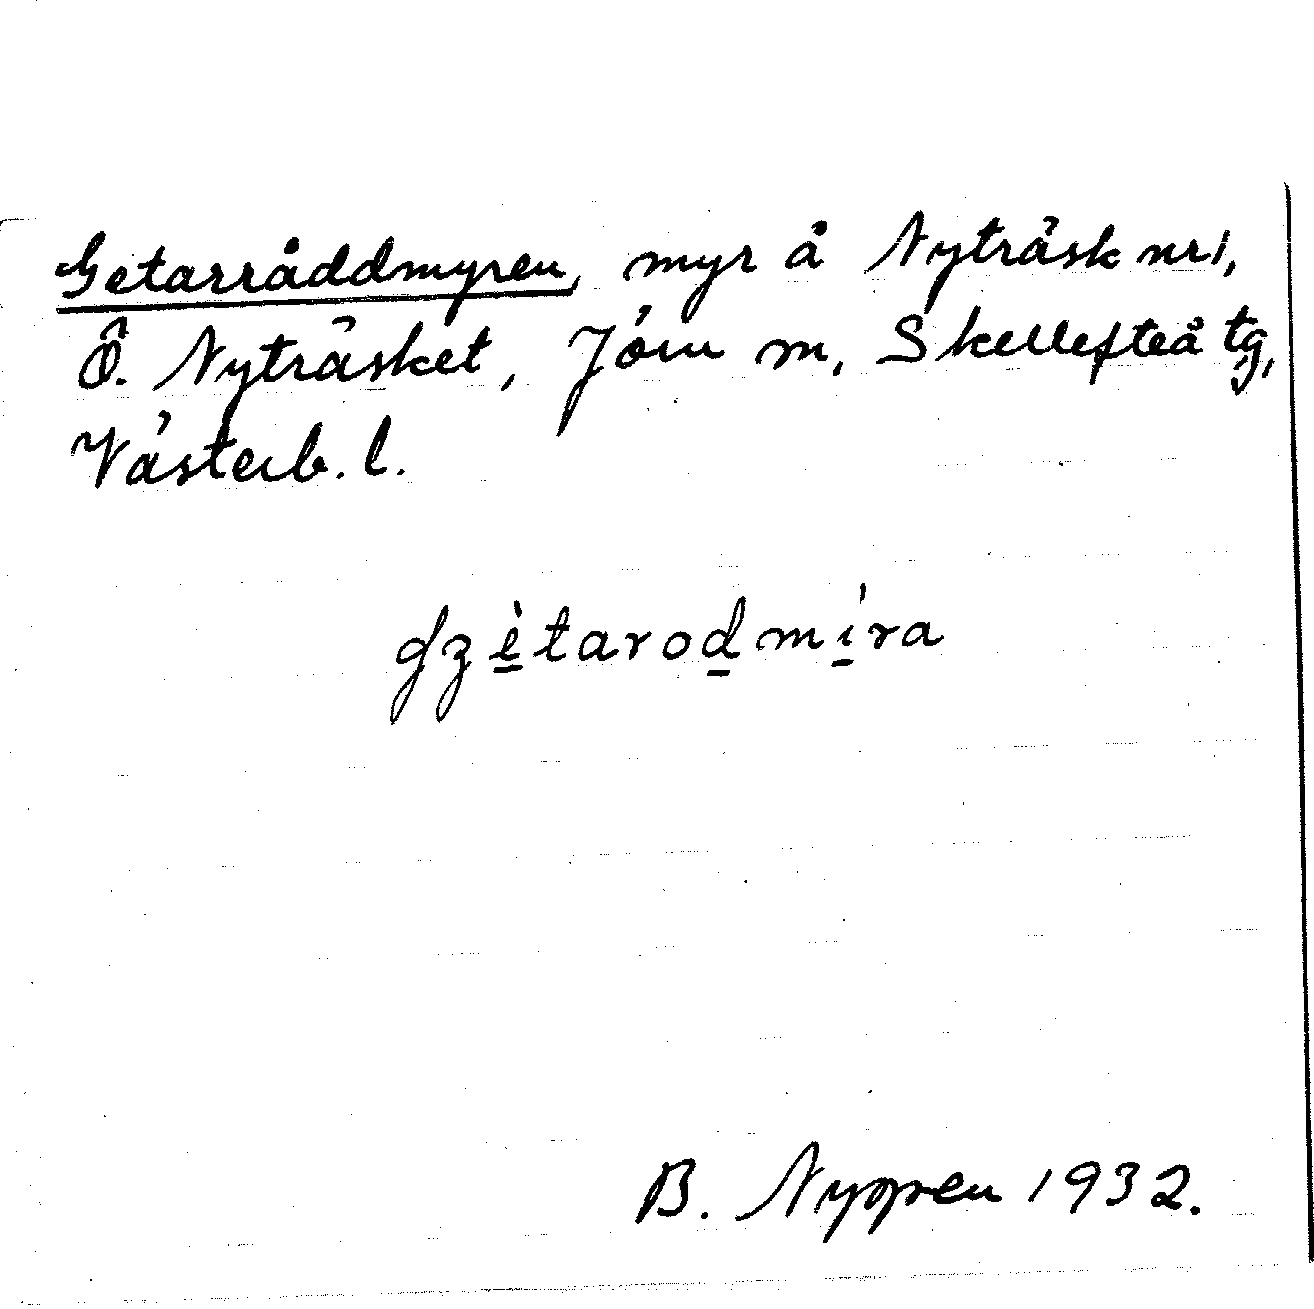 Getarråddmyren, myr å Nyträsk nr 1,
Ö. Nyträsket, Jörn sn, Skellefteå tg,
Västerb. l.
ʤzètarodmíra
B. Nygren 1932.